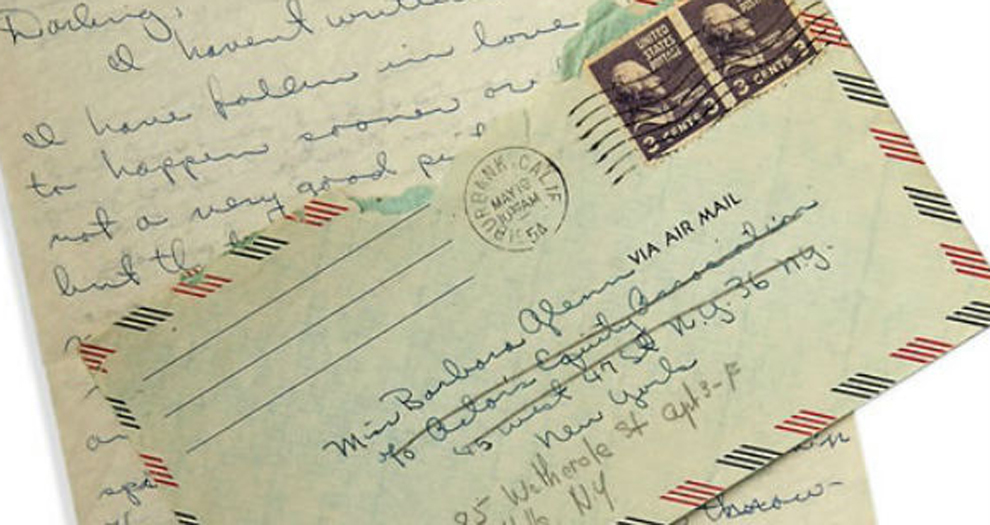 Darling,
I haven't written
I have fallen in love
to happen sooner or
not a very good
but th
UNITED
STATES
POSTAGE
3 CENTS 3
3 CENTS 3
BURBANK, CALIF.
MAY 19
AM
1954
VIA AIR MAIL
Miss Barbara Glenn
c/o Actor's Equity Association
45 West 47 St N.Y. 36 N.Y.
New York
Wetherole St Apt 3-F
NY